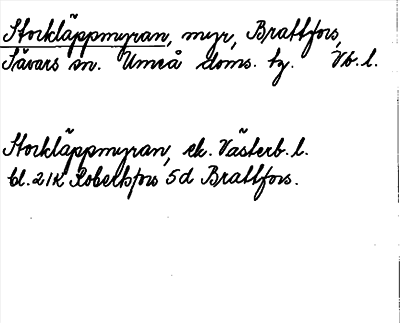 Storkläppmyran, myr, Brattfors,
Sävars sn. Umeå doms. hg. Vb. l.
Storkläppmyran, ek. Västerb. l.
bl. 21K Robertsfors 5d Brattfors.